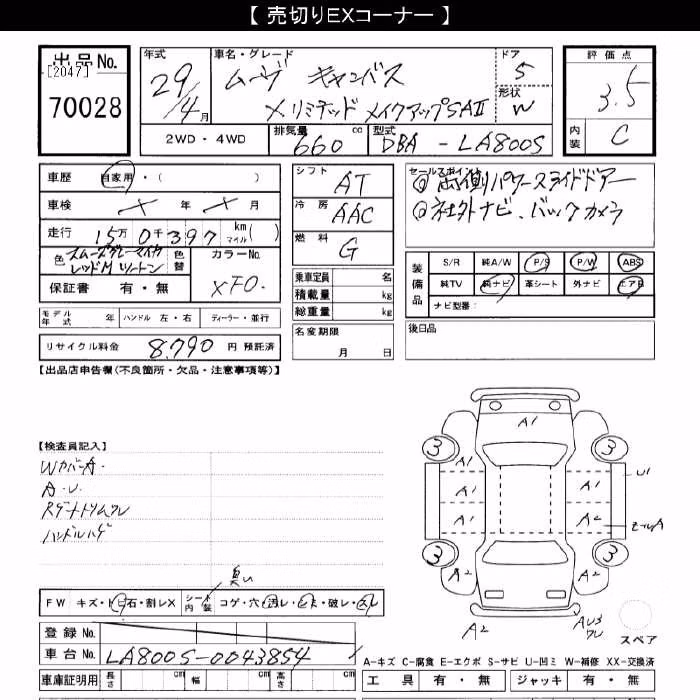 【 売切りEXコーナー 】
出品 No.
[2047]
70028
年式
29/4 月
車名・グレード
ムーヴ キャンバス
Xリミテッド メイクアップSAⅡ
ドア
5
形状
W
評価点
3.5
内装
C
2WD・4WD
排気量
660 cc
型式
DBA - LA800S
車歴
自家用・( )
車検
× 年 × 月
走行
15万 0千397 km マイル( )
色
スムースグレーマイカ
レッドM ツートン
色替
カラーNo.
XF0.
保証書 有・無
モデル年式 年
ハンドル 左・右
ディーラー・並行
リサイクル料金 8,790 円 預託済
シフト
AT
冷房
AAC
燃料
G
乗車定員 名
積載量 kg
総重量 kg
名変期限
月 日
セールスポイント
◎両側パワースライドドアー
◎社外ナビ、バックカメラ
装備品
S/R 純A/W P/S P/W ABS
純TV 純ナビ 革シート 外ナビ エアB
ナビ型番:
後日品
【出品店申告欄(不良箇所・欠品・注意事項等)】
【検査員記入】
Wカバー A.
A.U.
Rゲートトリムワレ
ハンドルハゲ
臭い
FW キズ・トビ石・割レX
シート内装 コゲ・穴・汚レ・シミ・破レ・スレ
登録 No.
車台 No. LA800S-0043854
車庫証明用 長さ cm 幅 cm 高さ cm
A1
3
3
A1
A1
A1
A1
A1
A2
U1
A
3
3
A2
A2
A2
AU3
ワレ
スペア
A−キズ C−腐食 E−エクボ S−サビ U−凹ミ W−補修 XX−交換済
工具 有・無 ジャッキ 有・無